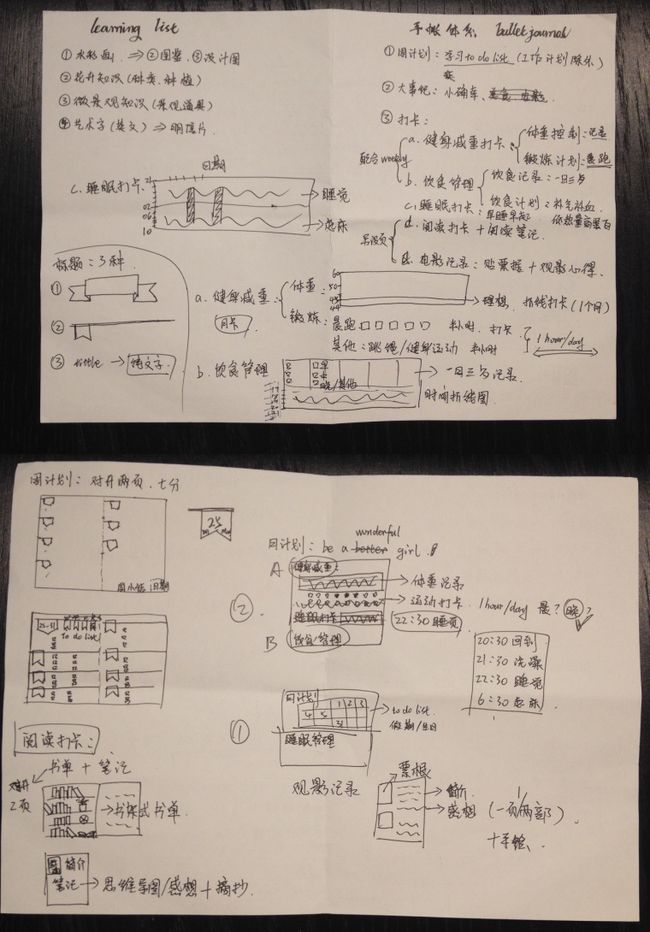 learning list
① 水彩画 ⇒ ② 图鉴 ③ 设计图
② 花卉知识 (种类、种植)
③ 微景观知识 (景观道具)
④ 艺术字 (英文) ⇒ 明信片
日期
c. 睡眠打卡
21
02
06
10
→ 睡觉
→ 起床
标题：3种
①
②
③ → 博文字
手帐体系 bullet journal
① 周计划：学习 to do list (工作计划除外)
② 大事记：小确幸、
③ 打卡：
配合 weekly
a. 健身减重打卡
体重控制：记录
锻炼计划：晨跑
b. 饮食管理
饮食记录：一日三岁
饮食计划：补气补血
低热量高蛋白
c. 睡眠打卡：早睡早起
d. 阅读打卡 + 阅读笔记
电影记录：贴票据 + 观影心得.
a. 健身减重
月卡
体重：
60
50
45
40
→ 理想，折线打卡 (1个月)
锻炼：晨跑 □ □ □ □ □ 补时. 打卡
其他：跳绳/健身运动 补时
1 hour/day
b. 饮食管理
早
晚/其他
→ 一日三岁记录
时间折线图
周计划：对开两页、七分
25
周小结
日期
to do list
阅读打卡：
书单 + 笔记
对开
2页
→ 书架式书单
简介
笔记 → 思维导图/感想 + 摘抄.
wunderful
月计划：be a better girl.
A 健身减重：
→ 体重记录
→ 运动打卡. 1 hour/day 晨？晚？
②
睡眠打卡
22:30 睡觉
B 饮食管理
20:30 回到
21:30 洗澡
22:30 睡觉
6:30 起床
月计划
1 2 3
4 5
31
→ to do list
假期/生日
①
睡眠管理
观影记录
票根
→ 简介
→ 感想 (一页/两部)
+ 手绘.